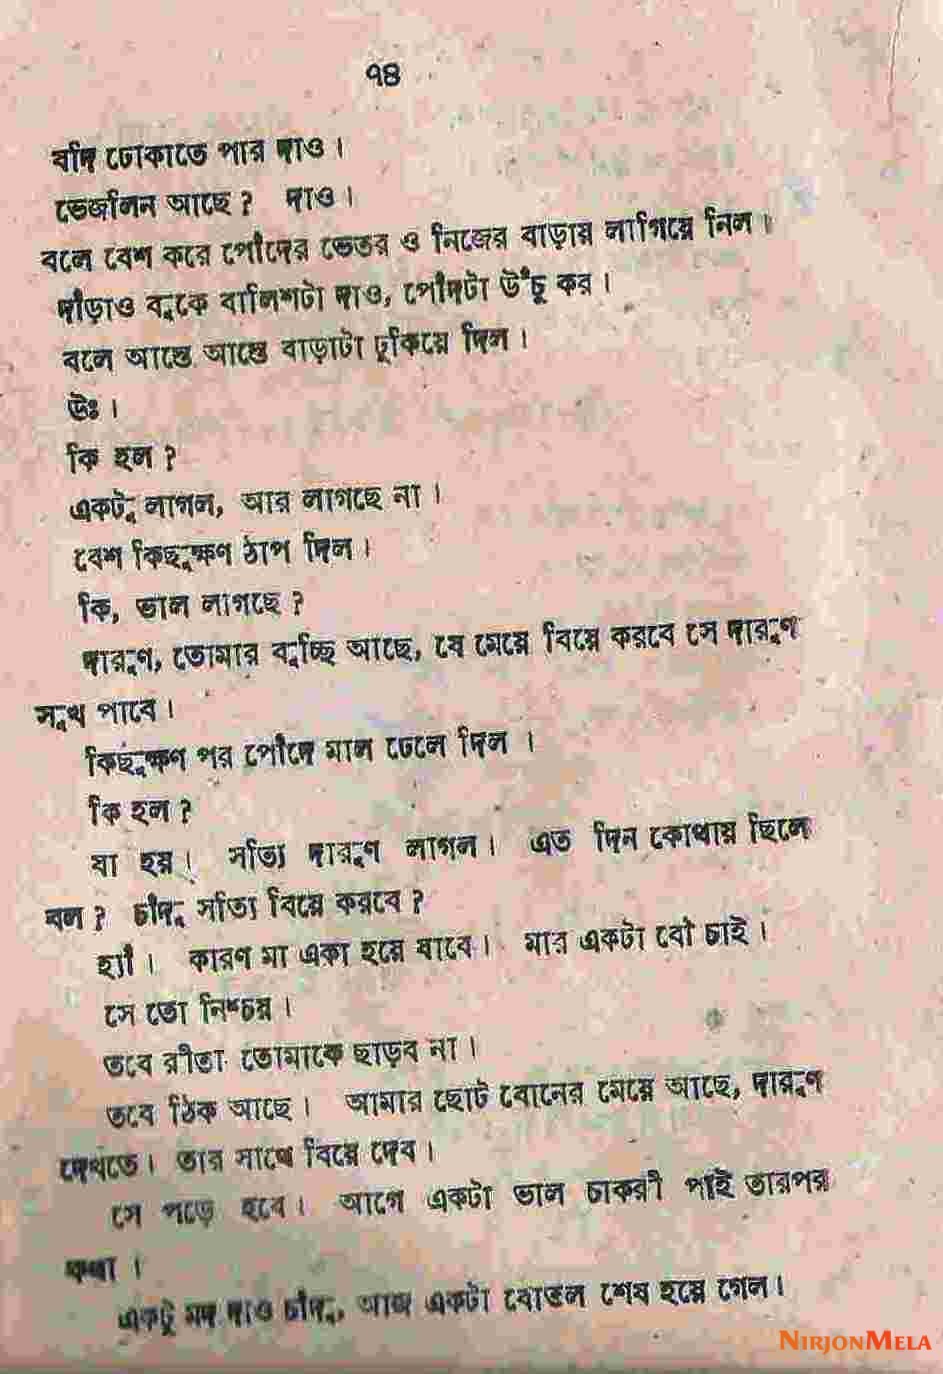 ৭৪
যদি ঢোকাতে পার দাও।
ভেজলিন আছে? দাও।
বলে বেশ করে পোঁদের ভেতর ও নিজের বাড়ায় লাগিয়ে নিল।
দাঁড়াও বুকে বালিশটা দাও, পোঁদটা উঁচু কর।
বলে আস্তে আস্তে বাড়াটা ঢুকিয়ে দিল।
উঃ।
কি হল?
একটু লাগল, আর লাগছে না।
বেশ কিছুক্ষণ ঠাপ দিল।
কি, ভাল লাগছে?
দারুণ, তোমার বুদ্ধি আছে, যে মেয়ে বিয়ে করবে সে দারুণ
সুখ পাবে।
কিছুক্ষণ পর পোঁদে মাল ঢেলে দিল।
কি হল?
যা হয়। সত্যি দারুণ লাগল। এত দিন কোথায় ছিলে
বল? চাঁদু সত্যি বিয়ে করবে?
হ্যাঁ। কারণ মা একা হয়ে যাবে। মার একটা বৌ চাই।
সে তো নিশ্চয়।
তবে রীতা তোমাকে ছাড়ব না।
তবে ঠিক আছে। আমার ছোট বোনের মেয়ে আছে, দারুণ
দেখতে। তার সাথে বিয়ে দেব।
সে পড়ে হবে। আগে একটা ভাল চাকরী পাই তারপর
কথা।
একটু মদ দাও চাঁদু, আজ একটা বোতল শেষ হয়ে গেল।
NIRJONMELA